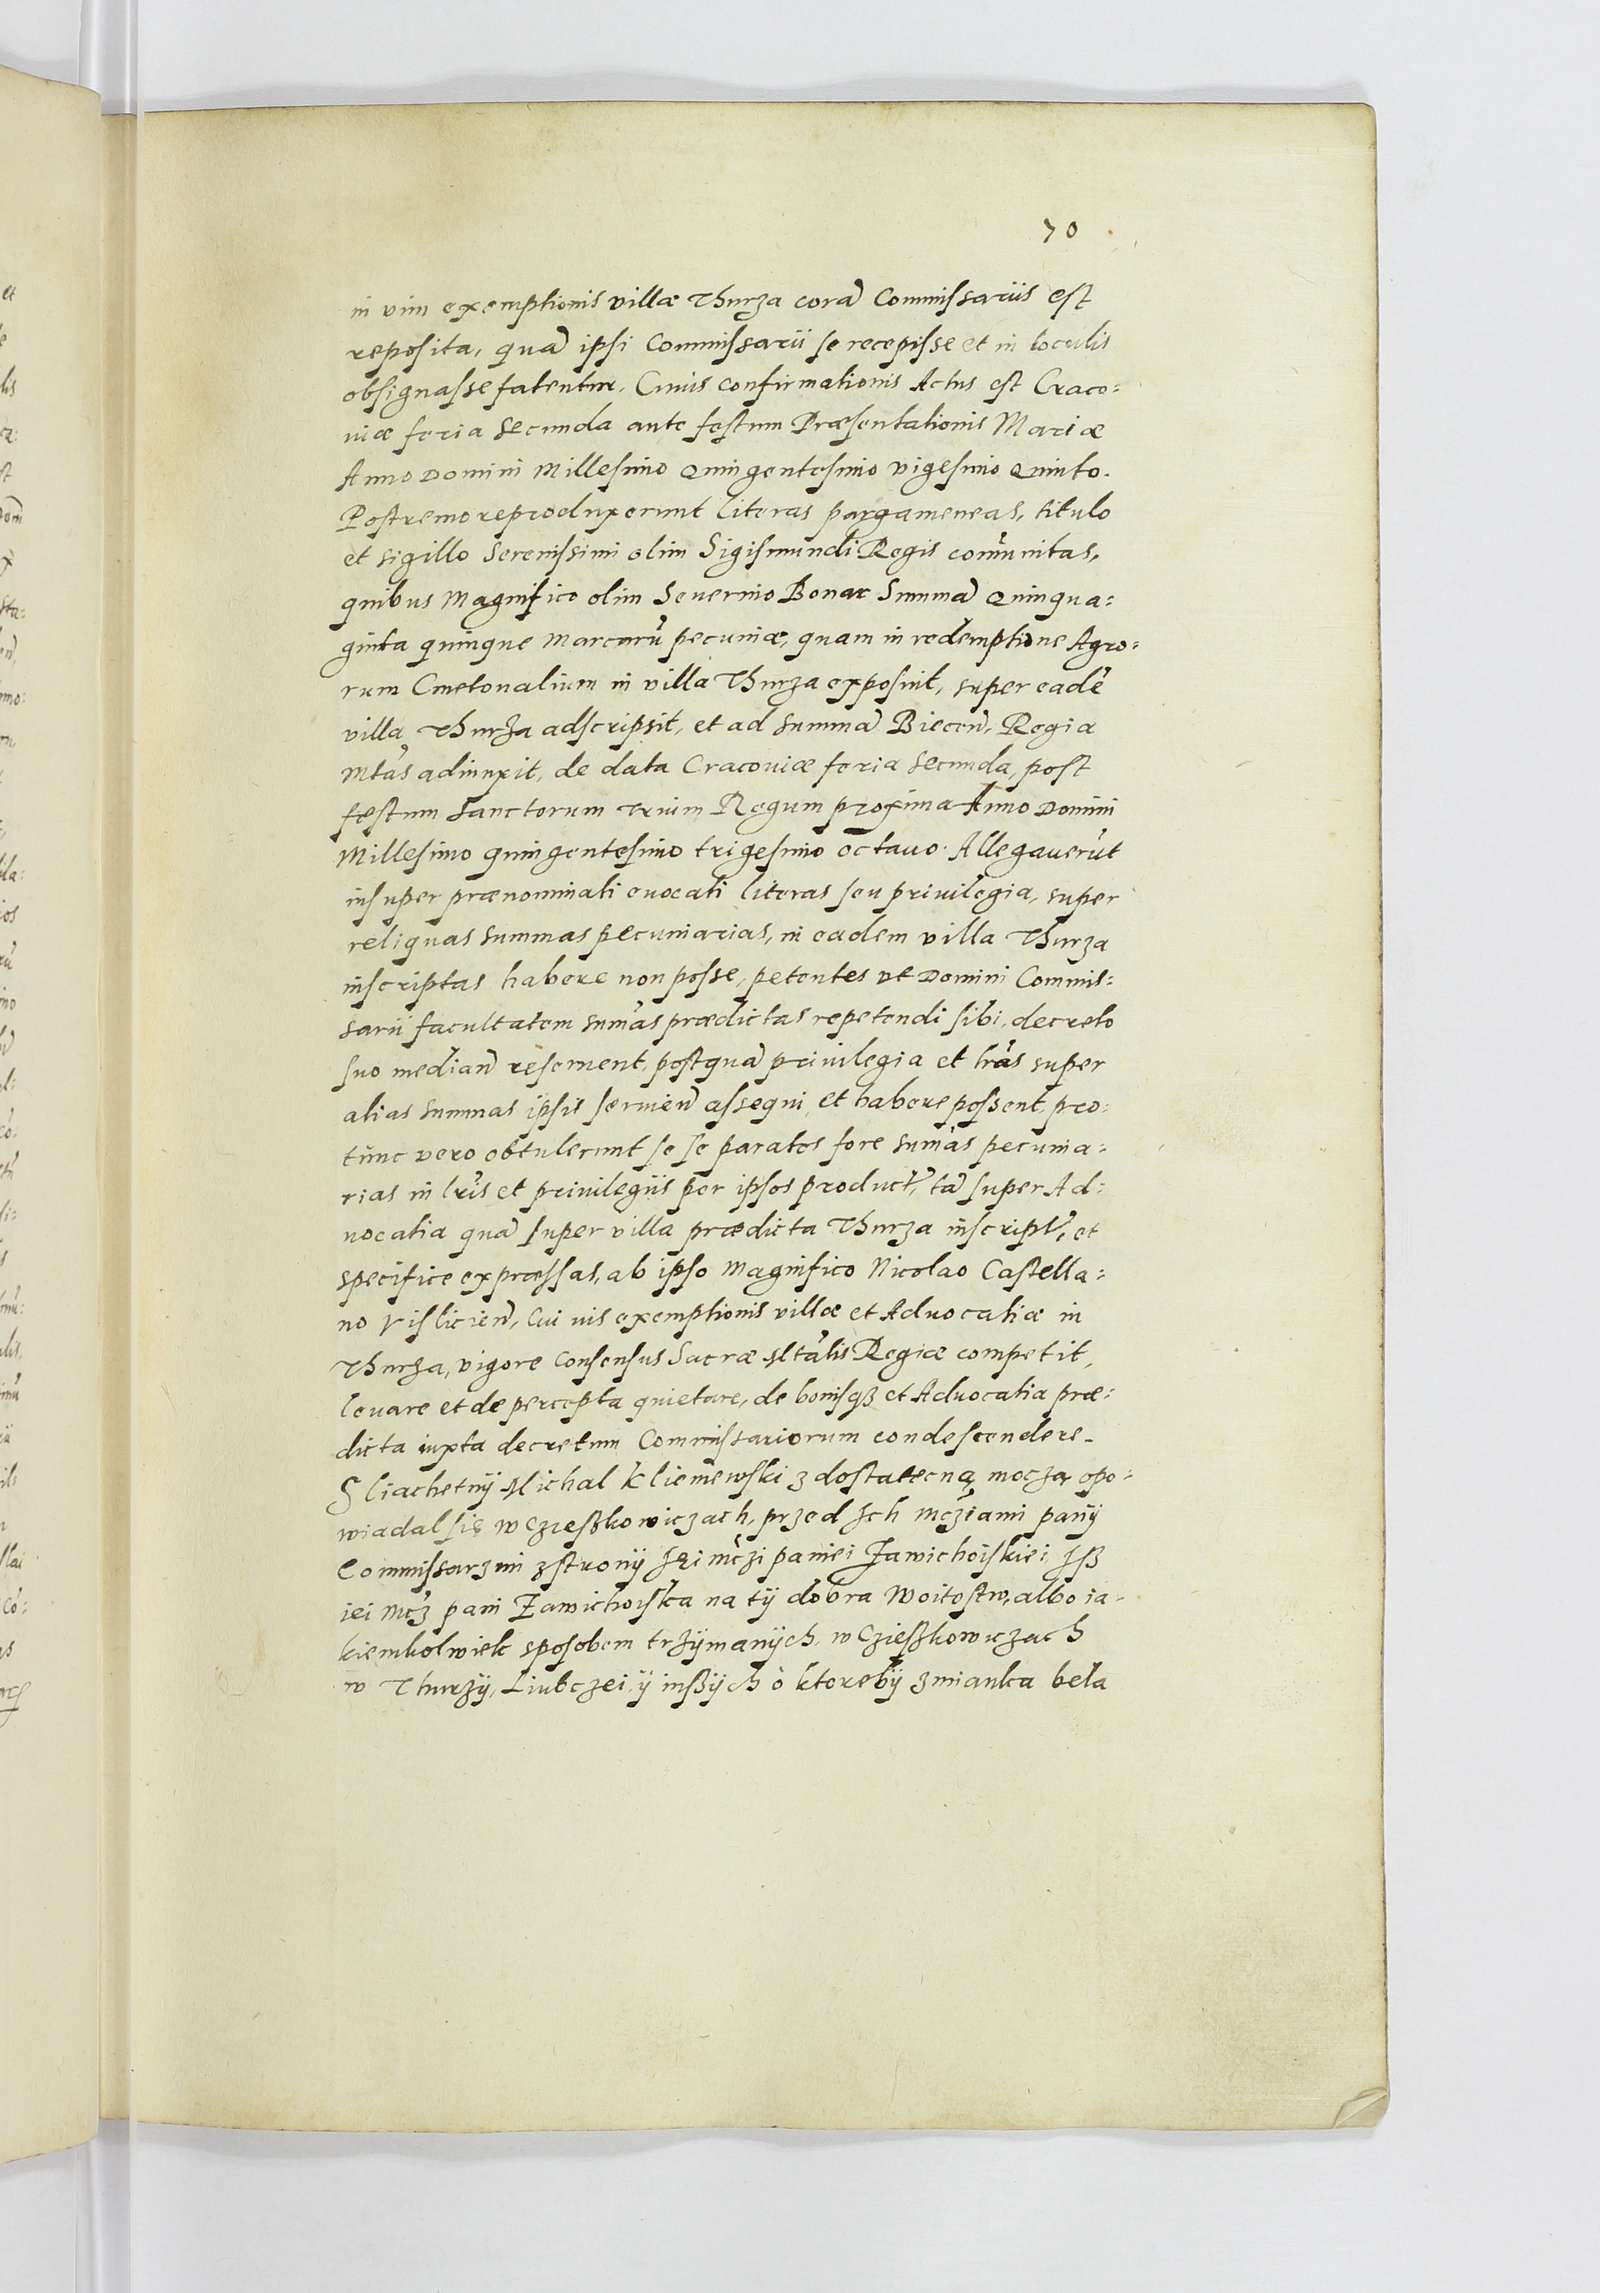 70
in vim exemptionis villæ Thurza corã Commissariis est
reposita, quã ipsi Commissarii se recepisse et in loculis
obsignasse fatentur. Cuius confirmationis Actus est Craco=
uiæ feria secunda ante festum Præsentationis Mariæ
Anno Domini Millesimo Quingentesimo vigesimo Quinto.
Postremo reproduxerunt literas pargameneas, titulo
et sigillo Serenissimi olim Sigismundi Regis com̃unitas,
quibus Magnifico olim Seuerino Bonar Summã Quinqua=
ginta quinque marcarũ pecuniæ, quam in redemptione Agro=
rum Cmetonalium in villa Thurza exposuit, super eadẽ
villa Thurza adscripsit, et ad summã Biecen̄, Regia
Mtãs adiunxit, de data Cracouiæ feria secunda, post
festum Sanctorum trium Regum proxima Anno Domini
Millesimo quingentesimo trigesimo octauo. Allegauerũt
insuper prænominati euocati literas seu priuilegia, super
reliquas summas pecuniarias, in eadem villa Thurza
inscriptas habere non posse, petentes vt Domini Commis=
sarii facultatem sum̃as prædictas repetendi sibi, decreto
suo median̄ reseruent, postquã priuilegia et lrãs super
alias summas ipsis seruien̄ assequi et habere possent, pro=
tunc vero obtulerunt se se paratos fore sum̃as pecunia=
rias in lrĩs et priuilegiis per ipsos product̃, tã super Ad=
uocatia quã super villa prædicta Thurza inscript̃, et
specifice expressas, ab ipso Magnifico Nicolao Castella=
no Vislicien̄, cui uis exemptionis villæ et Aduocatiæ in
Thurza, vigore consensus Sacræ Mtãlis Regiæ competit,
leuare et de percepta quietare, de bonisqȝ et Aduocatia præ=
dicta iuxta decretum Commissariorum condescendere.
Sliachetnÿ Michal Kliemewski z dostatecną moczą opo=
wiadal się w Czieszkowiczach, przed Ich Mcziami panÿ
Commissarzmi z stronÿ Jei mczi paniei Zawichoiskiei, Jß
iei Mcz pani Zawichoiska na tÿ dobra Woitostw, albo ia=
kiemkolwiek sposobem trzÿmanÿch, w Czieszkowiczach
w Thurzÿ, Liubczei, ÿ inßÿch o ktorebÿ zmianka bela